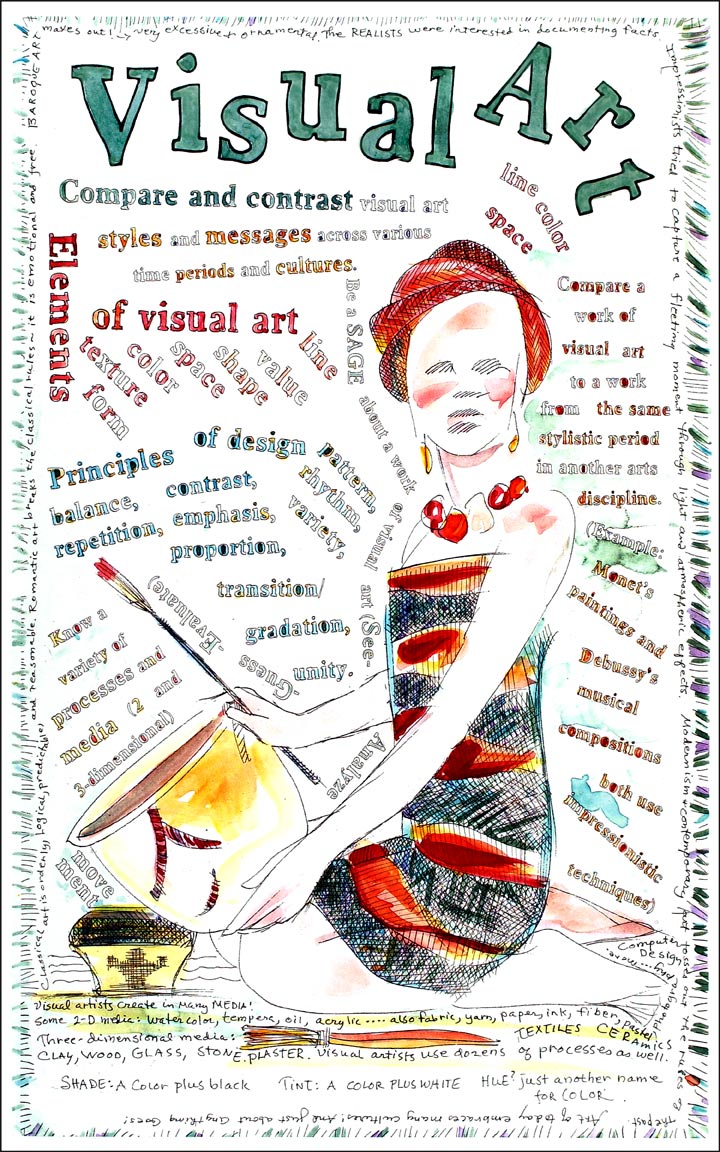 Classical art is orderly, logical, predictable, and reasonable. Romantic art breaks the classical rules ~ it is emotional and free. BAROQUE ART
makes out! → very excessive + ornamental. The REALISTS were interested in documenting facts.
Impressionists tried to capture a fleeting moment through light and atmospheric effects. Modernism & contemporary just tossed out the rules of
the past. Art of today embraces many cultures! And just about anything Goes!
Visual Art
line color
space
Compare and contrast visual art
styles and messages across various
time periods and cultures.
Elements
of visual art
line
value
shape
space
color
texture
form
Principles of design
pattern,
rhythm,
variety,
contrast,
balance,
emphasis,
repetition,
proportion,
transition/
gradation,
unity.
Be a SAGE
about a work of visual
art (See-
Analyze
-Guess
-Evaluate)
Know a
variety of
processes and
media (2 and
3-dimensional)
movement
Compare a
work of
visual art
to a work
from the same
stylistic period
in another arts
discipline.
(Example:
Monet's
paintings and
Debussy's
musical
compositions
both use
impressionistic
techniques)
Visual artists create in Many MEDIA!
Some 2-D media: watercolor, tempera, oil, acrylic .... also fabric, yarn, paper, ink, fiber, pastel,
Computer
Design
Three-dimensional media:
TEXTILES CERAMICS
CLAY, WOOD, GLASS, STONE, PLASTER. Visual artists use dozens of processes as well.
SHADE: A Color plus black TINT: A COLOR PLUS WHITE HUE? just another name
for COLOR.